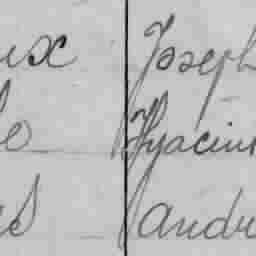 ux Joseph
lo Hyacin
es Andr